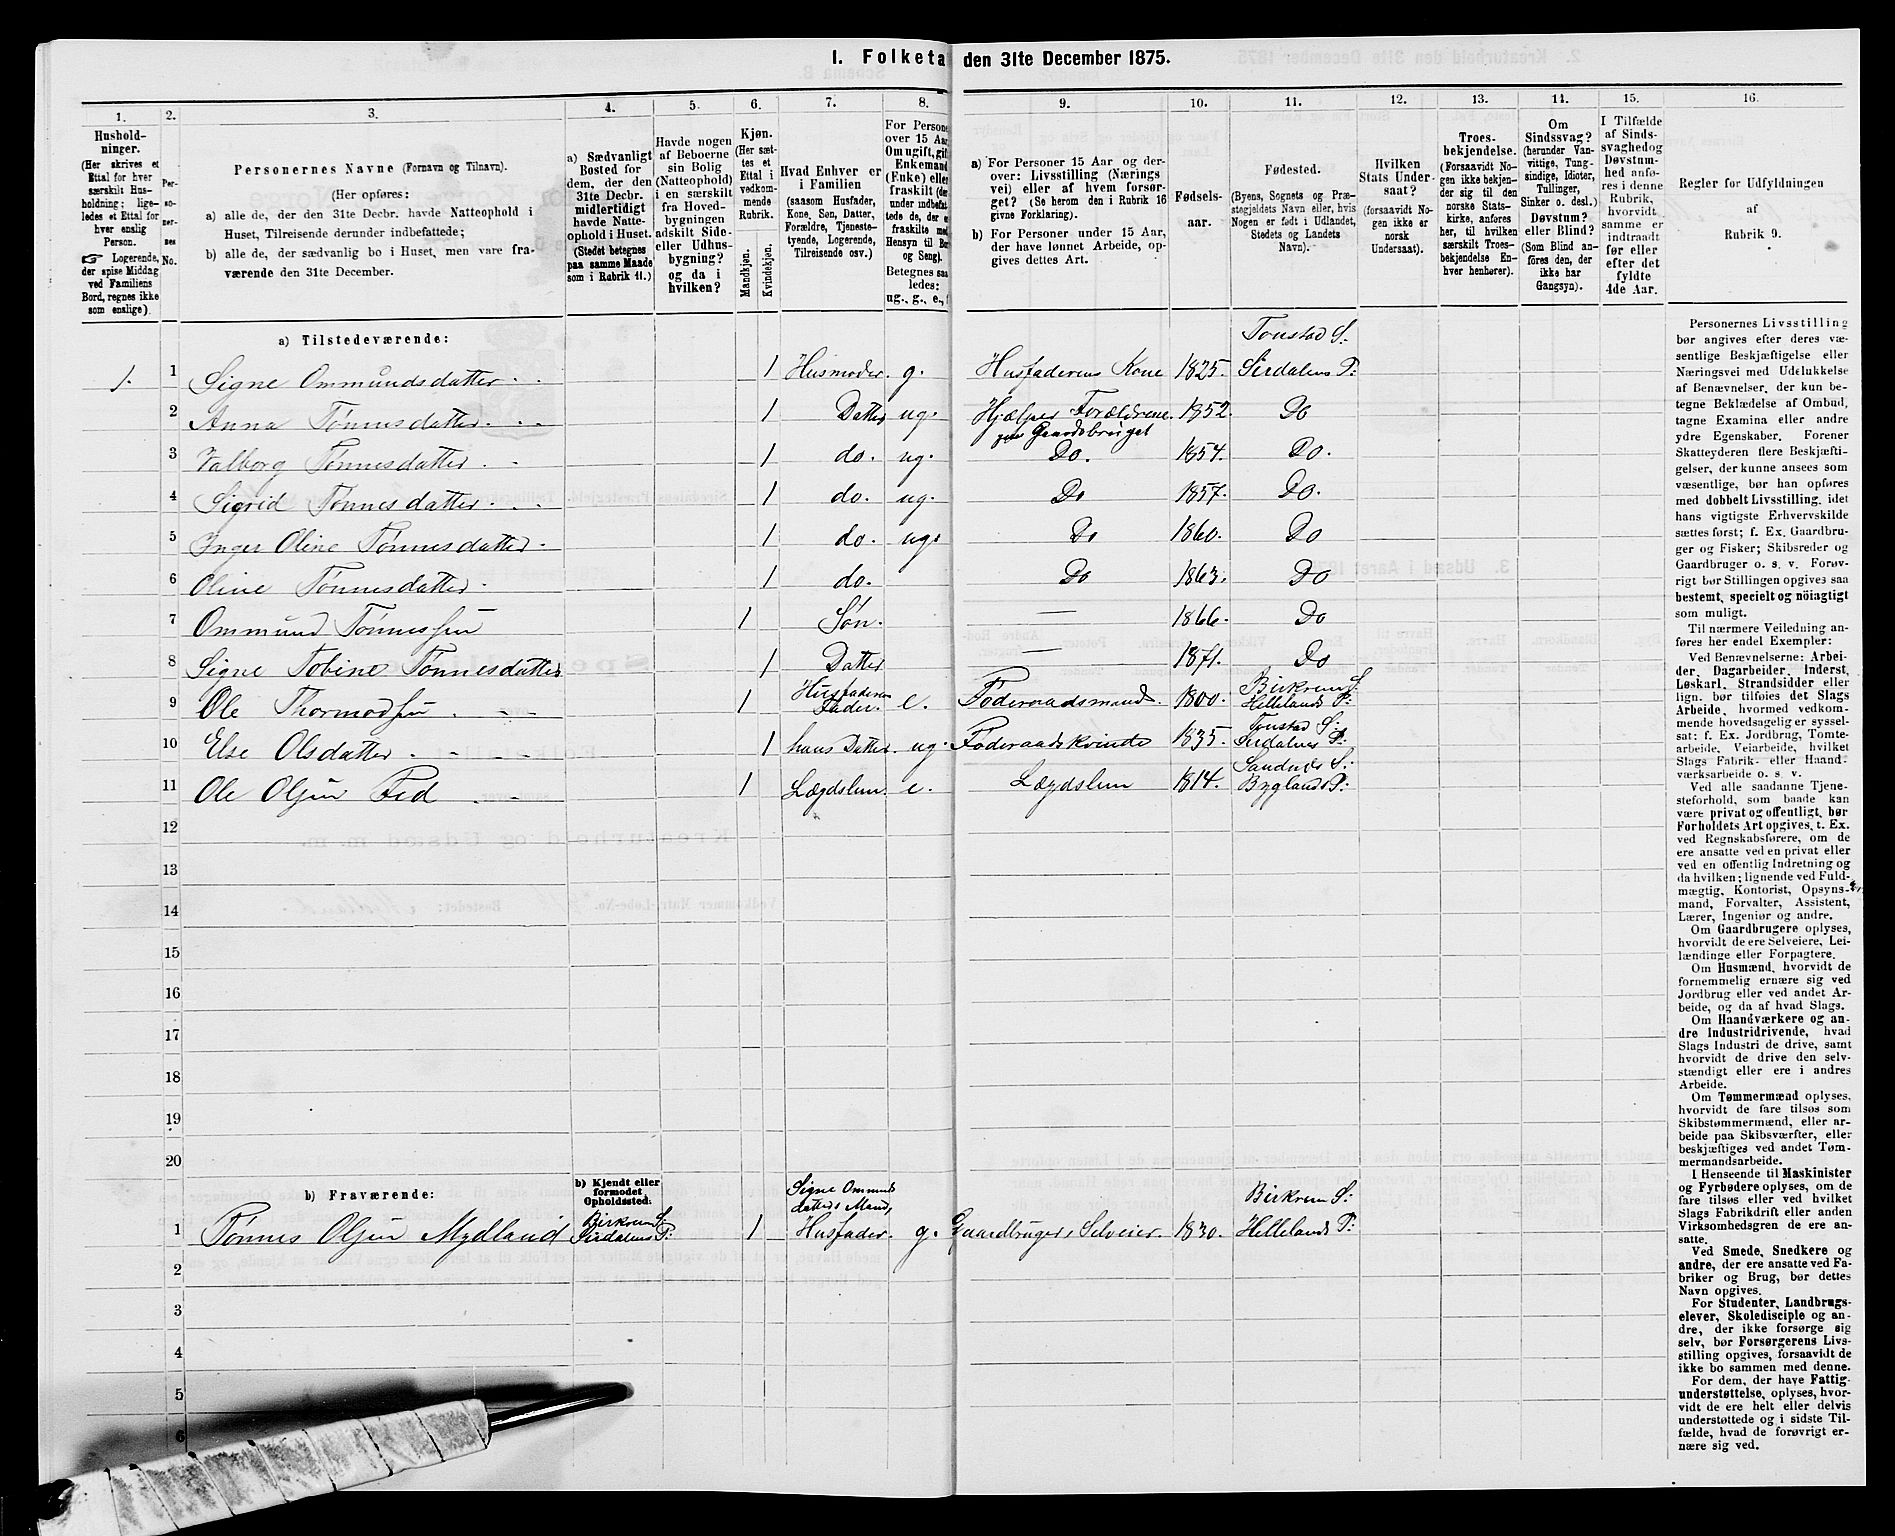 I. Folketa den 31te December 1875.
1.
Hushold-
ninger.
(Her skrives et
Ettal for hver
særskilt Hus-
holdning; lige-
ledes et Ettal for
hver enslig
Person.
☞ Logerende,
der spise Middag
ved Familiens
Bord, regnes ikke
som enslige).
2.
Per-
so-
ner-
nes
No.
3.
Personernes Navne (Fornavn og Tilnavn).
(Her opføres:
a) alle de, der den 31te Decbr. havde Natteophold i
Huset, Tilreisende derunder indbefattede;
b) alle de, der sædvanlig bo i Huset, men vare fra-
værende den 31te December.
4.
a) Sædvanligt
Bosted for
dem, der den
31te Decbr.
midlertidigt
havde Natte-
ophold i Huset.
(Stedet betegnes
paa samme Maade
som i Rubrik 11.)
5.
Havde nogen
af Beboerne
sin Bolig
(Natteophold)
i en særskilt
fra Hoved-
bygningen
adskilt Side-
eller Udhus-
bygning?
og da i
hvilken?
6.
Kjøn.
(Her sæt-
tes et
Ettal i
vedkom-
mende
Rubrik.
Mandkjøn.
Kvindekjøn.
7.
Hvad Enhver er
i Familien
(saasom Husfader,
Kone, Søn, Datter,
Forældre, Tjeneste-
tyende, Logerende,
Tilreisende osv.)
8.
For Persone
over 15 Aar
Om ugift, gift
Enkemand
(Enke) elle
fraskilt (de
under indbefat-
tede de, der e
fraskilte med
Hensyn til Bo
og Seng).
Betegnes saa
ledes:
ug., g., e.,
9.
a) For Personer 15 Aar og der-
over: Livsstilling (Nærings
vei) eller af hvem forsør-
get? (Se herom den i Rubrik 16
givne Forklaring).
b) For Personer under 15 Aar,
der have lønnet Arbeide, op-
gives dettes Art.
10.
Fødsels-
aar.
11.
Fødested.
(Byens, Sognets og Præ-
stegjeldets Navn eller, hvis
Nogen er født i Udlandet,
Stedets og Landets
Navn).
12.
Hvilken
Stats Under-
saat?
(forsaavidt No-
gen ikke er
norsk
Undersaat).
13.
Troes-
bekjendelse.
(Forsaavidt No-
gen ikke bekjen-
der sig til den
norske Stats-
kirke, anføres
her, til hvilken
særskilt Troes-
bekjendelse En-
hver henhører).
14.
Om
Sindssvag?
(herunder Van-
vittige, Tung-
sindige, Idioter,
Tullinger,
Sinker o. desl.)
Døvstum?
eller Blind?
(Som Blind an-
føres den, der
ikke har
Gangsyn).
15.
I Tilfælde
af Sinds-
svaghed og
Døvstum-
hed anfø-
res i denne
Rubrik,
hvorvidt
samme er
indtraadt
før eller
efter det
fyldte
4de Aar.
16.
Regler for Udfyldningen
af
Rubrik 9.
a) Tilstedeværende:
Tonstad S.
1. 1 Signe Ommundsdatter 1 Husmoder g. Husfaderens Kone 1825. Sirdalens P:
2 Anna Tønnesdatter 1 Datter ug. Hjælper Forældrene 1852. Do
Gaardsbruget
3 Valborg Tønnesdatter 1 do. ug. Do. 1854. Do.
4 Sigrid Tønnesdatter 1 do. ug. Do 1857. Do.
5 Inger Oline Tønnesdatter 1 do. ug. Do 1860. Do
6 Oline Tønnesdatter 1 do. Do 1863. Do
7 Ommund Tønnessen 1 Søn. — 1866. Do
8 Signe Tobine Tønnesdatter 1 Datter — 1871. Do
9 Ole Thormodsen 1 Husfaderens Fader. e. Føderaadsmand. 1800. Birkrem S: Hellelands P:
10 Else Olsdatter 1 hans Datter ug. Føderaadskvinde 1835. Tonstad S: Sirdalens P:
11 Ole Olsen Fed 1 Lægdslem e. Lægdslem 1814. Sandnæs S: Byglands P:
12
13
14
15
16
17
18
19
20
b) Fraværende:
b) Kjendt eller
formodet
Opholdssted.
Signe Ommunds
datters Mand,
1 Tønnes Olsen Mydland Birkrem S. Sirdalens P: 1 Husfader. g. Gaardbruger, Selveier. 1830. Birkrem S: Hellelands P:
2
3
4
5
6
Personernes Livsstilling
bør angives efter deres væ-
sentlige Beskjæftigelse eller
Næringsvei med Udelukkelse
af Benævnelser, der kun be-
tegne Beklædelse af Ombud,
tagne Examina eller andre
ydre Egenskaber. Forener
Skatteyderen flere Beskjæfti-
gelser, der kunne ansees som
væsentlige, bør han opføres
med dobbelt Livsstilling, idet
hans vigtigste Erhvervskilde
sættes først; f. Ex. Gaardbru-
ger og Fisker; Skibsreder og
Gaardbruger o. s. v. Forøv-
rigt bør Stillingen opgives saa
bestemt, specielt og nöiagtigt
som muligt.
Til nærmere Veiledning an-
føres her endel Exempler:
Ved Benævnelserne: Arbei-
der, Dagarbeider, Inderst,
Løskarl, Strandsidder eller
lign. bør tilføies det Slags
Arbeide, hvormed vedkom-
mende hovedsagelig er syssel-
sat; f. Ex. Jordbrug, Tomte-
arbeide, Veiarbeide, hvilket
Slags Fabrik- eller Haand-
værksarbeide o. s. v.
Ved alle saadanne Tjene-
steforhold, som baade kan
være privat og offentligt, bør
Forholdets Art opgives, t. Ex.
ved Regnskabsførere, om de
ere ansatte ved en privat eller
ved en offentlig Indretning og
da hvilken; lignende ved Fuld-
mægtig, Kontorist, Opsyns-
mand, Forvalter, Assistent,
Lærer, Ingeniør og andre.
Om Gaardbrugere oplyses,
hvorvidt de ere Selveiere, Lei-
lændinge eller Forpagtere.
Om Husmænd, hvorvidt de
fornemmelig ernære sig ved
Jordbrug eller ved andet Ar-
beide, og da af hvad Slags.
Om Haandværkere og an-
dre Industridrivende, hvad
Slags Industri de drive, samt
hvorvidt de drive den selv-
stændigt eller ere i andres
Arbeide.
Om Tømmermænd oplyses,
hvorvidt de fare tilsøs som
Skibstømmermænd, eller ar-
beide paa Skibsværfter, eller
beskjæftiges ved andet Tøm-
mermandsarbeide.
I Henseende til Maskinister
og Fyrbødere oplyses, om de
fare tilsøs eller ved hvilket
Slags Fabrikdrift eller anden
Virksomhedsgren de ere an-
satte.
Ved Smede, Snedkere og
andre, der ere ansatte ved Fa-
briker og Brug, bør dettes
Navn opgives.
For Studenter, Landbrugs-
elever, Skoledisciple og an-
dre, der ikke forsørge sig
selv, bør Forsørgerens Livs-
stilling opgives, forsaavidt de
ikke bo sammen med denne.
For dem, der have Fattig-
understøttelse, oplyses, hvor-
vidt de ere helt eller delvis
understøttede og i sidste Til-
fælde, hvad de forøvrigt er-
nære sig ved.